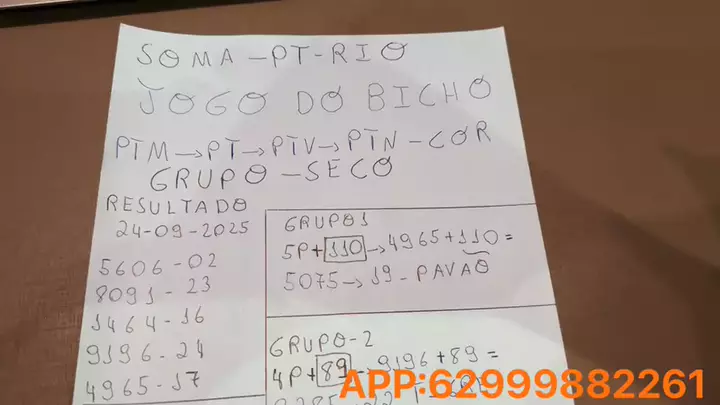 SOMA-PT-RIO
JOGO DO BICHO
PTM→PT→PTV→PTN-COR
GRUPO-SECO
RESULTADO
24-09-2025
5606-02
8091-23
1464-16
9196-24
4965-17
GRUPO 1
5P+110→4965+110=
5075→19-PAVÃO
GRUPO-2
4P+89→9196+89=
APP:62999882261